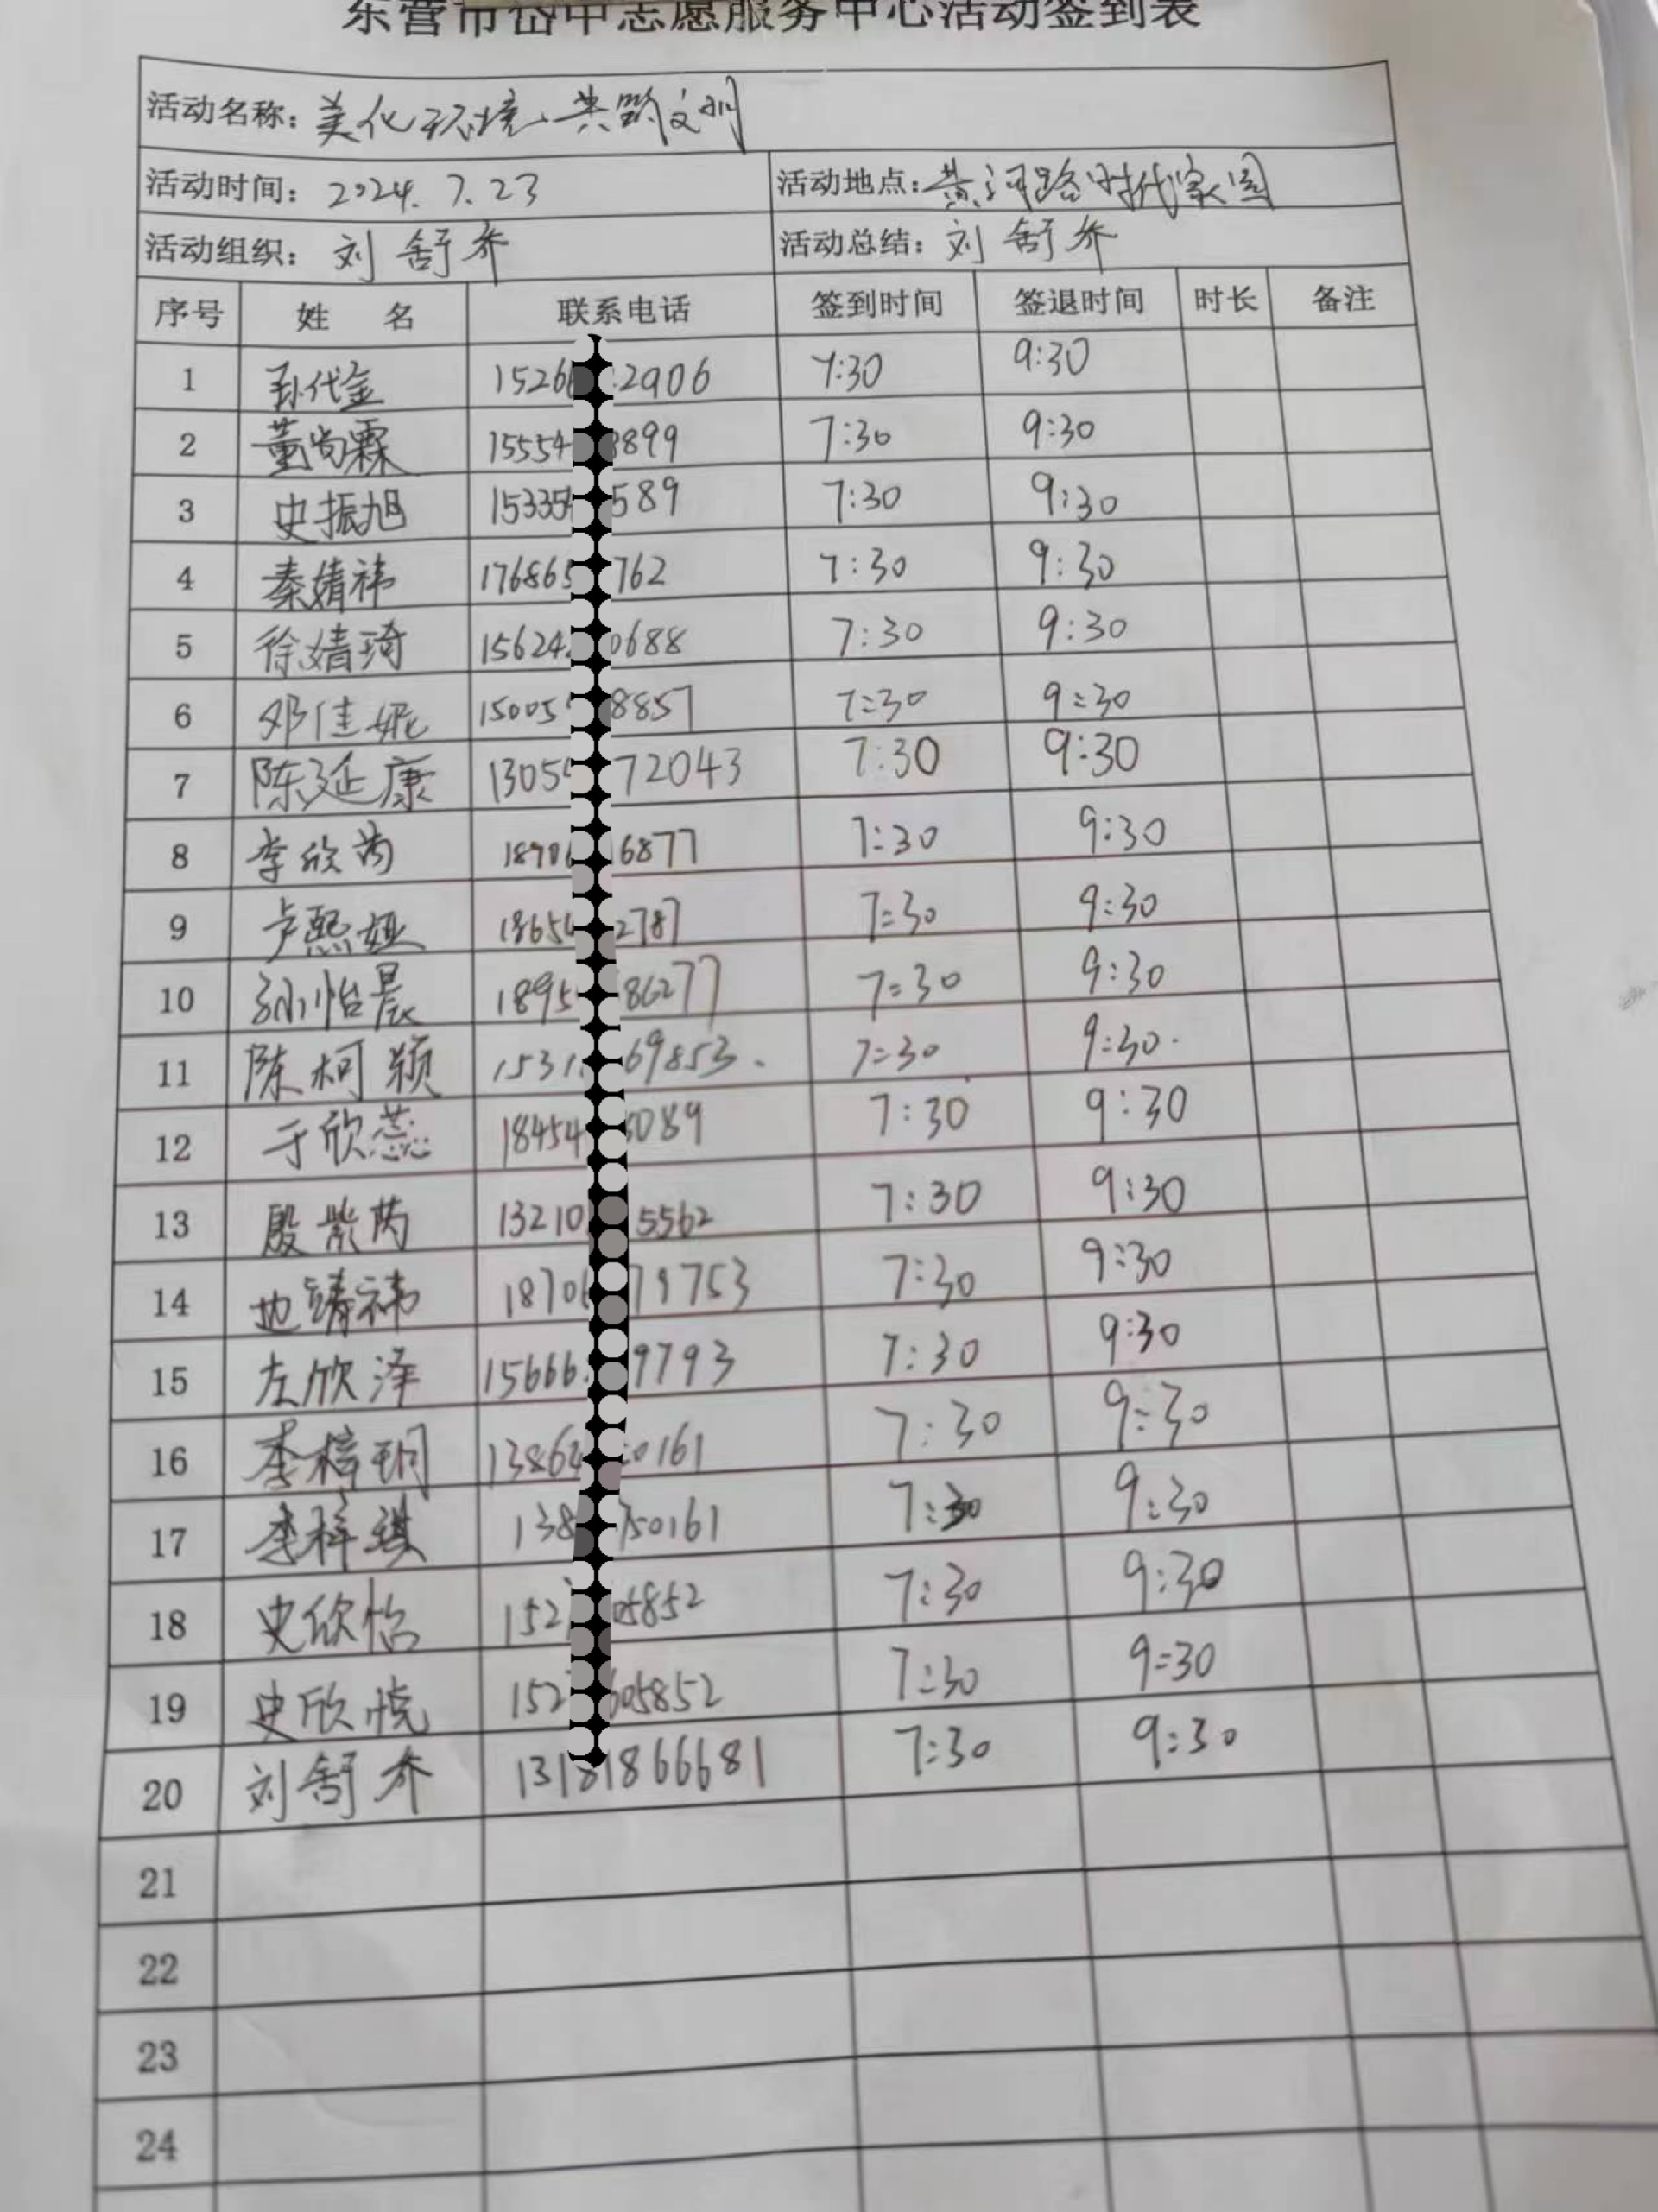 东营市岱中志愿服务中心活动签到表
活动名称：美化环境、共筑文明
活动时间：2024.7.23 活动地点：黄河路时代家园
活动组织：刘舒乔 活动总结：刘舒乔
序号 姓 名 联系电话 签到时间 签退时间 时长 备注
1 孙代金 1526 2906 7:30 9:30
2 董尚霖 15554 899 7:30 9:30
3 史振旭 15335 589 7:30 9:30
4 秦婧祎 176865 762 7:30 9:30
5 徐婧琦 15624 0688 7:30 9:30
6 邓佳妮 15005 8857 7:30 9:30
7 陈延康 1305 72043 7:30 9:30
8 李欣芮 1870 6877 7:30 9:30
9 卢熙娅 1865 2787 7:30 9:30
10 孙怡晨 1895 86277 7:30 9:30
11 陈柯颖 1531 69853. 7:30 9:30.
12 于欣蕊 18454 089 7:30 9:30
13 殷紫芮 13210 5562 7:30 9:30
14 靖祎 1870 79753 7:30 9:30
15 左欣泽 15666 9793 7:30 9:30
16 李梓玥 1386 0161 7:30 9:30
17 李梓琪 138 50161 7:30 9:30
18 史欣怡 152 05852 7:30 9:30
19 史欣悦 152 605852 7:30 9:30
20 刘舒乔 13181866681 7:30 9:30
21
22
23
24